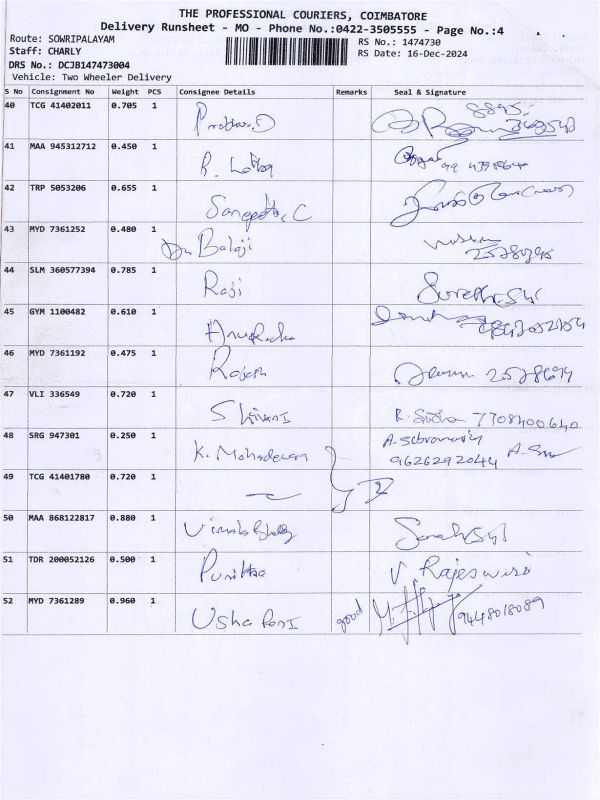 THE PROFESSIONAL COURIERS, COIMBATORE
Delivery Runsheet - MO - Phone No.:0422-3505555 - Page No.:4
Route: SOWRIPALAYAM RS No.: 1474730
Staff: CHARLY RS Date: 16-Dec-2024
DRS No.: DCJB147473004
Vehicle: Two Wheeler Delivery
S No Consignment No Weight PCS Consignee Details Remarks Seal & Signature
40 TCG 41402011 0.705 1
41 MAA 945312712 0.450 1 R. Latha
42 TRP 5053206 0.655 1 Sangeetha C
43 MYD 7361252 0.480 1 Dr. Balaji
44 SLM 360577394 0.785 1 Raji
45 GYM 1100482 0.610 1
46 MYD 7361192 0.475 1 Rajesh
47 VLI 336549 0.720 1 R. Sudha 7708400640
48 SRG 947301 0.250 1 K. Mahadevan 9626292044
49 TCG 41401780 0.720 1
50 MAA 868122817 0.880 1
51 TDR 200052126 0.500 1 Punitha V. Rajeswari
52 MYD 7361289 0.960 1 Usha Rani good 9448018089